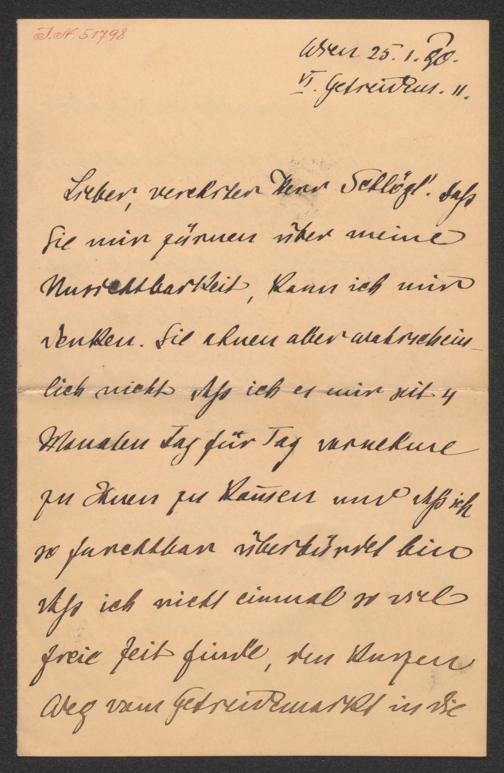 J.N. 51798
Wien 25. 1. 90.
VI. Getreidem. 11.
Lieber, verehrter Herr Schlögl! Daß
Sie mir zürnen über meine
Unsichtbarkeit, kann ich mir
denken. Sie ahnen aber wahrschein-
lich nicht daß ich es mir seit 4
Monaten Tag für Tag vornehme
zu Ihnen zu kommen und daß ich
so furchtbar überbürdet bin
daß ich nicht einmal so viel
freie Zeit finde, den kurzen
Weg vom Getreidemarkt in die